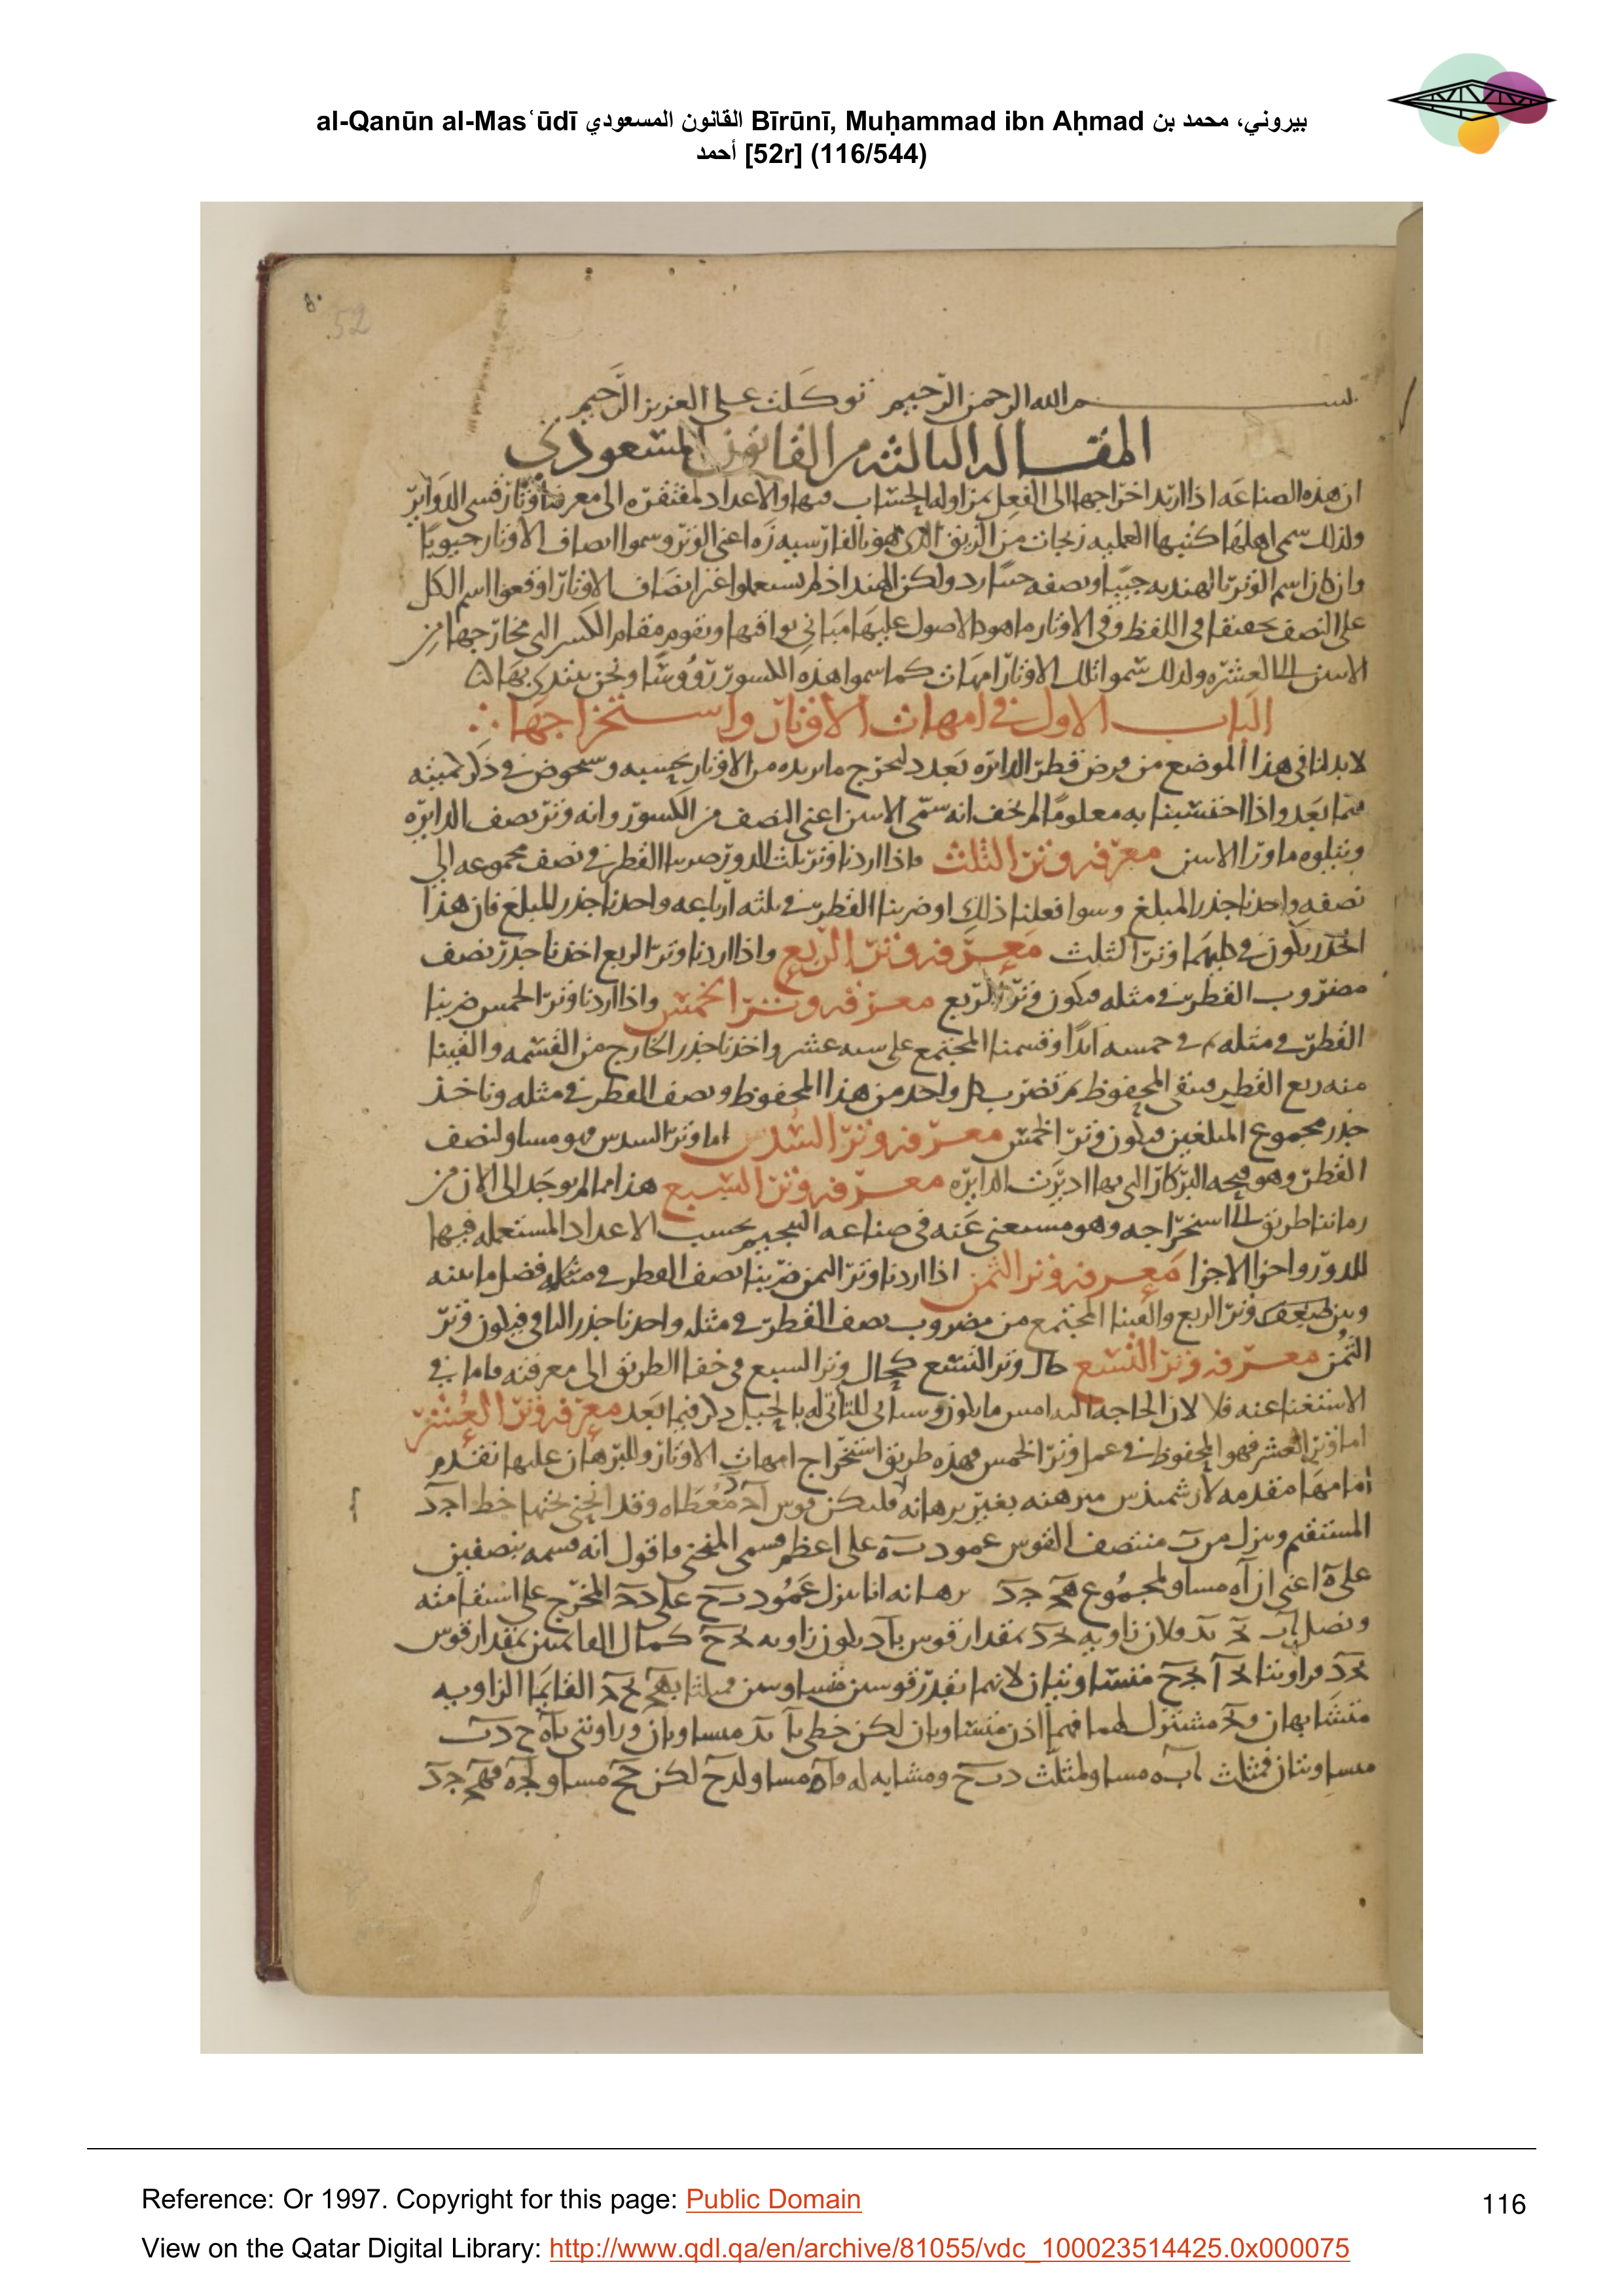 al-Qanūn al-Mas‘ūdī القانون المسعودي Bīrūnī, Muḥammad ibn Aḥmad بيروني، محمد بن
أحمد [52r] (116/544)
52
بسم الله الرحمن الرحيم توكلت على العزيز الرحيم
المقالة الثالثة من القانون المسعودي
ان هذه الصناعه اذا اريد اخراجها الى الفعل بمزاوله الحساب فيها والاعداد مفتقره الى معرفة اوتار قسى الدوائر
ولذلك سمى اهلها كتبها العلميه زيجات من الزيق الذى هو بالفارسيه زه اعنى الوتر وسموا انصاف الاوتار جيوبا
وان كان اسم الوتر بالهنديه جيبا ونصفه جيبارد ولكن الهند اذ لم يستعملوا غير انصاف الاوتار اوقعوا اسم الكل
على النصف تخفيفا فى اللفظ وفى الاوتار ما هو كالاصول عليها مبانى بواقيها وتقوم مقام الكسر التى مخارجها من
الاثنين الى العشره ولذلك سموا تلك الاوتار امهات كما سموا هذه الكسور رؤوسا ونحن نبتدى بها
الباب الاول فى امهات الاوتار واستخراجها
لا بد لنا فى هذا الموضع من فرض قطر الدائره بعدد لنخرج ما نريده من الاوتار بحسبه وسنخوض فى ذكر كميته
فيما بعد واذا احتسبنا به معلوما لم يخف انه سمى الاثنين اعنى النصف من الكسور وانه وتر نصف الدايره
ويتلوه ما وراء الاثنين معرفه وتر الثلث فاذا اردنا وتر ثلث الدور ضربنا القطر فى نصف مجموعه الى
نصفه واخذنا جذر المبلغ وسوا فعلنا ذلك او ضربنا القطر فى ثلثه ارباعه واخذنا جذر المبلغ فان هذا
الجذر يكون فى كليهما وتر الثلث معرفه وتر الربع واذا اردنا وتر الربع اخذنا جذر نصف
مضروب القطر فى مثله فيكون وتر الربع معرفه وتر الخمس واذا اردنا وتر الخمس ضربنا
القطر فى مثله ثم فى خمسه ابدا وقسمنا المجتمع على سته عشر واخذنا جذر الخارج من القسمه والقينا
منه ربع القطر فيبقى المحفوظ ثم نضرب كل واحد من هذا المحفوظ ونصف القطر فى مثله وناخذ
جذر مجموع المبلغين فيكون وتر الخمس معرفه وتر السدس اما وتر السدس فهو مساو لنصف
القطر وهو فتحه البركار التى بها اديرت الدايره معرفه وتر السبع هذا مما لم يوجد الى الان من
زماننا طريق الى استخراجه وهو مستغنى عنه فى صناعه التنجيم بحسب الاعداد المستعمله فيها
للدور واجزا الاجزا معرفه وتر الثمن اذا اردنا وتر الثمن ضربنا نصف القطر فى مثله فضل ما بينه
وبين ضعف وتر الربع والقينا المجتمع من مضروب نصف القطر فى مثله واخذنا جذر الباقى فيكون وتر
الثمن معرفه وتر التسع حال وتر التسع كحال وتر السبع فى خفا الطريق الى معرفته فاما فى
الاستغنا عنه فلا لان الحاجه اليه امس ما يكون وسياتى للتاتى له بالحيل ذكر فيما بعد معرفه وتر العشر
اما وتر العشر فهو المحفوظ فى عمل وتر الخمس فهذه طريق استخراج امهات الاوتار والبرهان عليها نقدم
امامها مقدمه لارشميذس مبرهنه بغير برهانه فليكن قوس معطاه وقد انحنى تحتها خط اجد
المستقيم وينزل من ب منتصف القوس عمود به على اعظم قسمى المنحنى فاقول انه قسمه بنصفين
على ه اعنى ان اه مساو لمجموع هج جد برهانه انا ننزل عمود بح على دح المخرج على استقامته
ونصل اب بج بد فلان زاويه بجد بمقدار قوس باد يكون زاويه بجح كمال القائمتين بمقدار قوس
بجد فزاويتا بجا بجح متساويتان لانهما بقدر قوسين متساويين فمثلثا بهج بحج القائما الزاويه
متشابهان وبج مشترك لهما فهما اذن متساويان لكن خطى با بد مساويان وزاويتى باه حدب
مساويتان فمثلث ابه مساو لمثلث دبح ومشابه له فاه مساو لدح لكن حج مساو لجه فهج جد
Reference: Or 1997. Copyright for this page: Public Domain
116
View on the Qatar Digital Library: http://www.qdl.qa/en/archive/81055/vdc_100023514425.0x000075